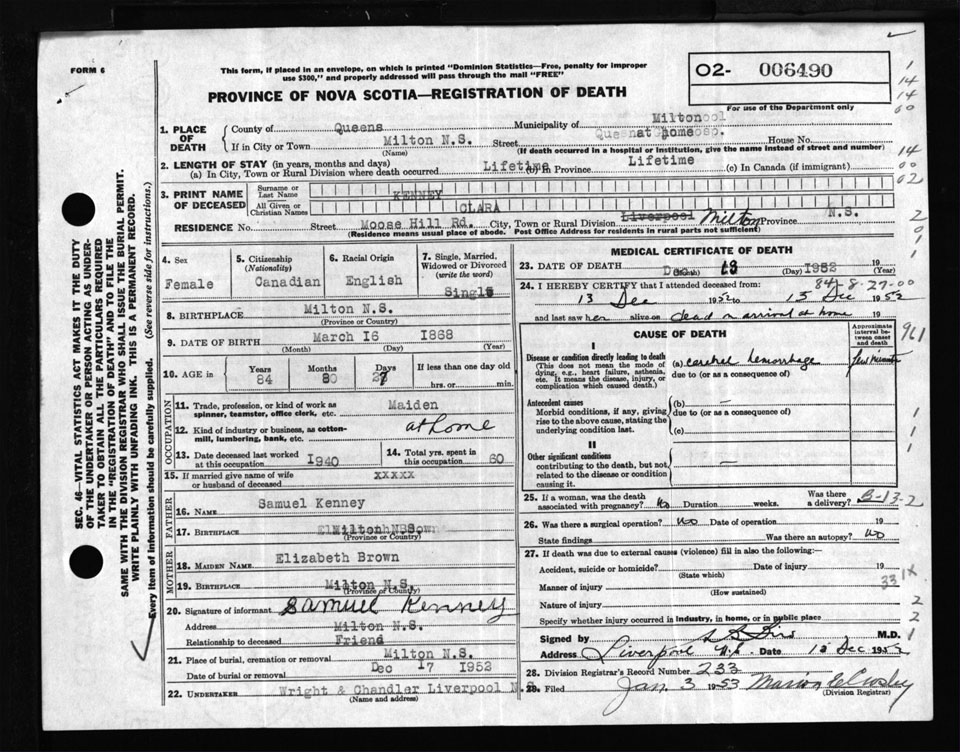 FORM 6
This form, if placed in an envelope, on which is printed "Dominion Statistics—Free, penalty for improper
use $300," and properly addressed will pass through the mail "FREE"
O2- 006490
For use of the Department only
PROVINCE OF NOVA SCOTIA—REGISTRATION OF DEATH
1. PLACE OF DEATH
County of Queens Municipality of Milton
If in City or Town Milton N.S. Street at home House No.
(Name) (If death occurred in a hospital or institution, give the name instead of street and number)
2. LENGTH OF STAY (in years, months and days)
(a) In City, Town or Rural Division where death occurred Lifetime (b) In Province Lifetime (c) In Canada (if immigrant)
3. PRINT NAME OF DECEASED
Surname or Last Name KENNEY
All Given or Christian Names CLARA
RESIDENCE No. Street Moose Hill Rd. City, Town or Rural Division Liverpool Milton Province N.S.
(Residence means usual place of abode. Post Office Address for residents in rural parts not sufficient)
4. Sex
Female
5. Citizenship (Nationality)
Canadian
6. Racial Origin
English
7. Single, Married, Widowed or Divorced (write the word)
Single
8. BIRTHPLACE Milton N.S.
(Province or Country)
9. DATE OF BIRTH March I6 I868
(Month) (Day) (Year)
10. AGE in Years Months Days If less than one day old
84 hrs. or min.
OCCUPATION
11. Trade, profession, or kind of work as spinner, teamster, office clerk, etc. Maiden
12. Kind of industry or business, as cotton-mill, lumbering, bank, etc. at home
13. Date deceased last worked at this occupation I940
14. Total yrs. spent in this occupation 60
15. If married give name of wife or husband of deceased xxxxx
FATHER
16. NAME Samuel Kenney
17. BIRTHPLACE Milton N.S.
(Province or Country)
MOTHER
18. MAIDEN NAME Elizabeth Brown
19. BIRTHPLACE Milton N.S.
(Province or Country)
20. Signature of informant Samuel Kenney
Address Milton N.S.
Relationship to deceased Friend
21. Place of burial, cremation or removal Milton N.S.
Date of burial or removal Dec I7 I952
22. UNDERTAKER Wright & Chandler Liverpool N.S.
(Name and address)
MEDICAL CERTIFICATE OF DEATH
23. DATE OF DEATH Dec 1952 19
(Month) (Day) (Year)
84-8-27-00
24. I HEREBY CERTIFY that I attended deceased from:
13 Dec 1952 to 13 Dec 1952
and last saw her alive on dead on arrival at home 19
CAUSE OF DEATH
Approximate interval between onset and death
I
Disease or condition directly leading to death
(This does not mean the mode of dying, e.g., heart failure, asthenia, etc. It means the disease, injury, or complication which caused death.)
(a) cerebral hemorrhage
due to (or as a consequence of)
Antecedent causes
Morbid conditions, if any, giving rise to the above cause, stating the underlying condition last.
(b) —
due to (or as a consequence of)
(c)
II
Other significant conditions
contributing to the death, but not related to the disease or condition causing it.
—
911
25. If a woman, was the death associated with pregnancy? No Duration weeks. Was there a delivery? B-13-2
26. Was there a surgical operation? No Date of operation 19
State findings Was there an autopsy? No
27. If death was due to external causes (violence) fill in also the following:—
Accident, suicide or homicide? Date of injury 19
(State which)
Manner of injury 33
(How sustained)
Nature of injury
Specify whether injury occurred in industry, in home, or in public place
Signed by M.D.
Address Liverpool N.S. Date 13 Dec 1952
28. Division Registrar's Record Number 233
29. Filed Jan. 3 1953
(Division Registrar)
SEC. 46—VITAL STATISTICS ACT MAKES IT THE DUTY
OF THE UNDERTAKER OR PERSON ACTING AS UNDER-
TAKER TO OBTAIN ALL THE PARTICULARS REQUIRED
IN THE "REGISTRATION OF DEATH" AND TO FILE THE
SAME WITH THE DIVISION REGISTRAR WHO SHALL ISSUE THE BURIAL PERMIT.
WRITE PLAINLY WITH UNFADING INK. THIS IS A PERMANENT RECORD.
Every item of information should be carefully supplied. (See reverse side for instructions.)